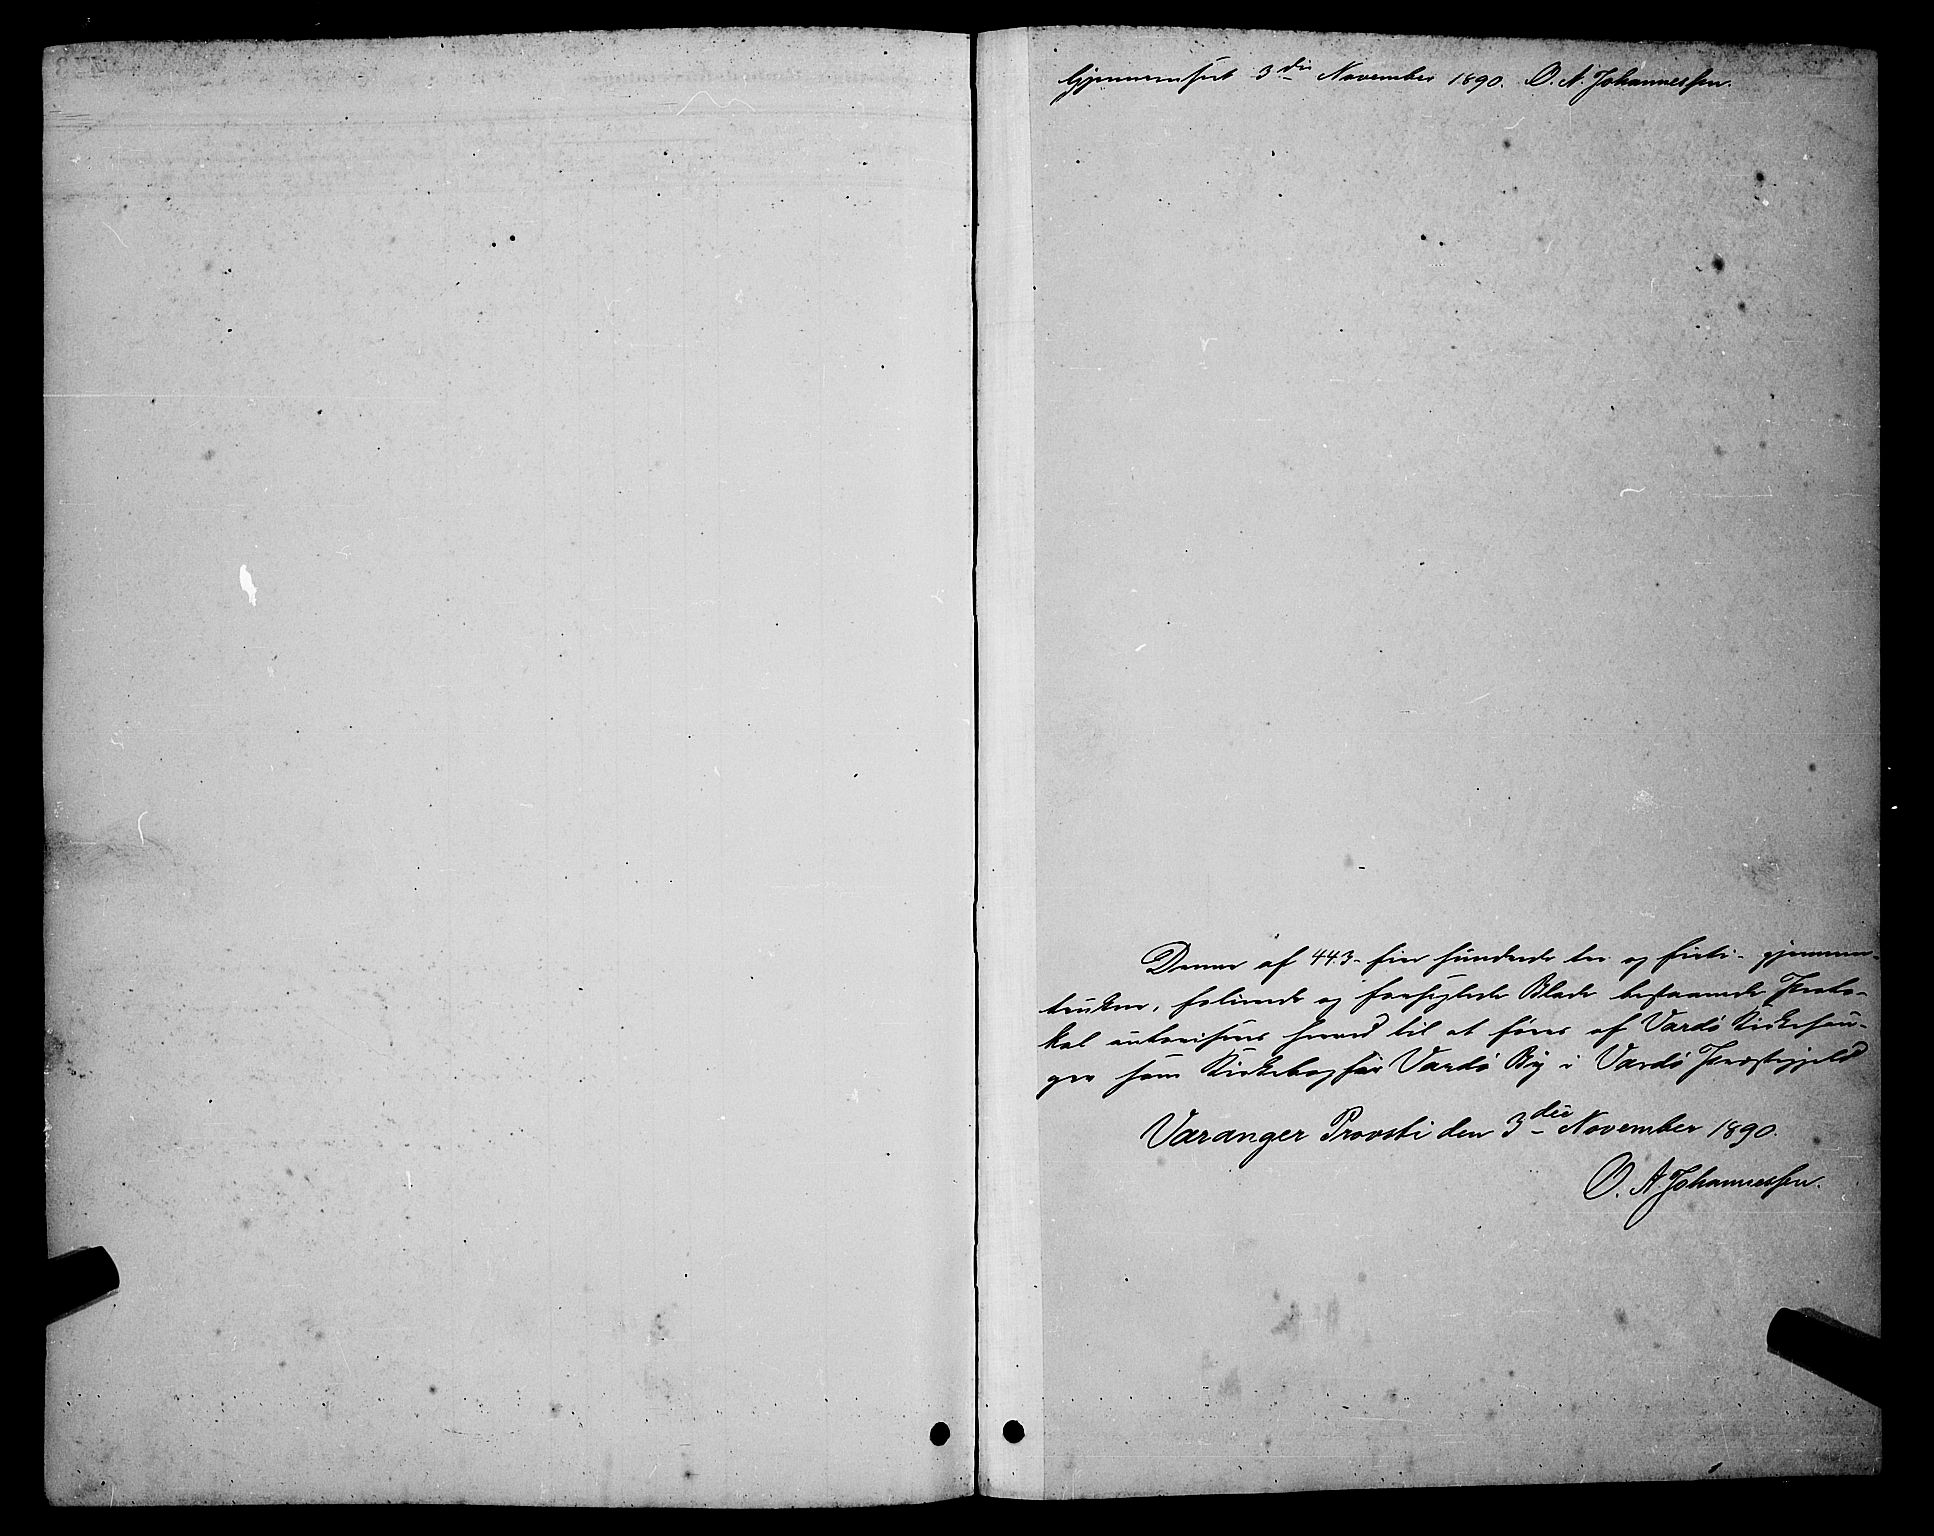 Gjennemseet 3die November 1890. O. A. Johannessen.
Denne af 443 - fire hundrede tre og firti - gjennem-
trukne, folierede og forseglede Blade bestaaende Proto-
kol autoriseres herved til at føres af Vardø Kirkesan-
ger som Kirkebog for Vardø By i Vardø Præstegjeld
Varanger Provsti den 3die November 1890.
O. A. Johannessen.